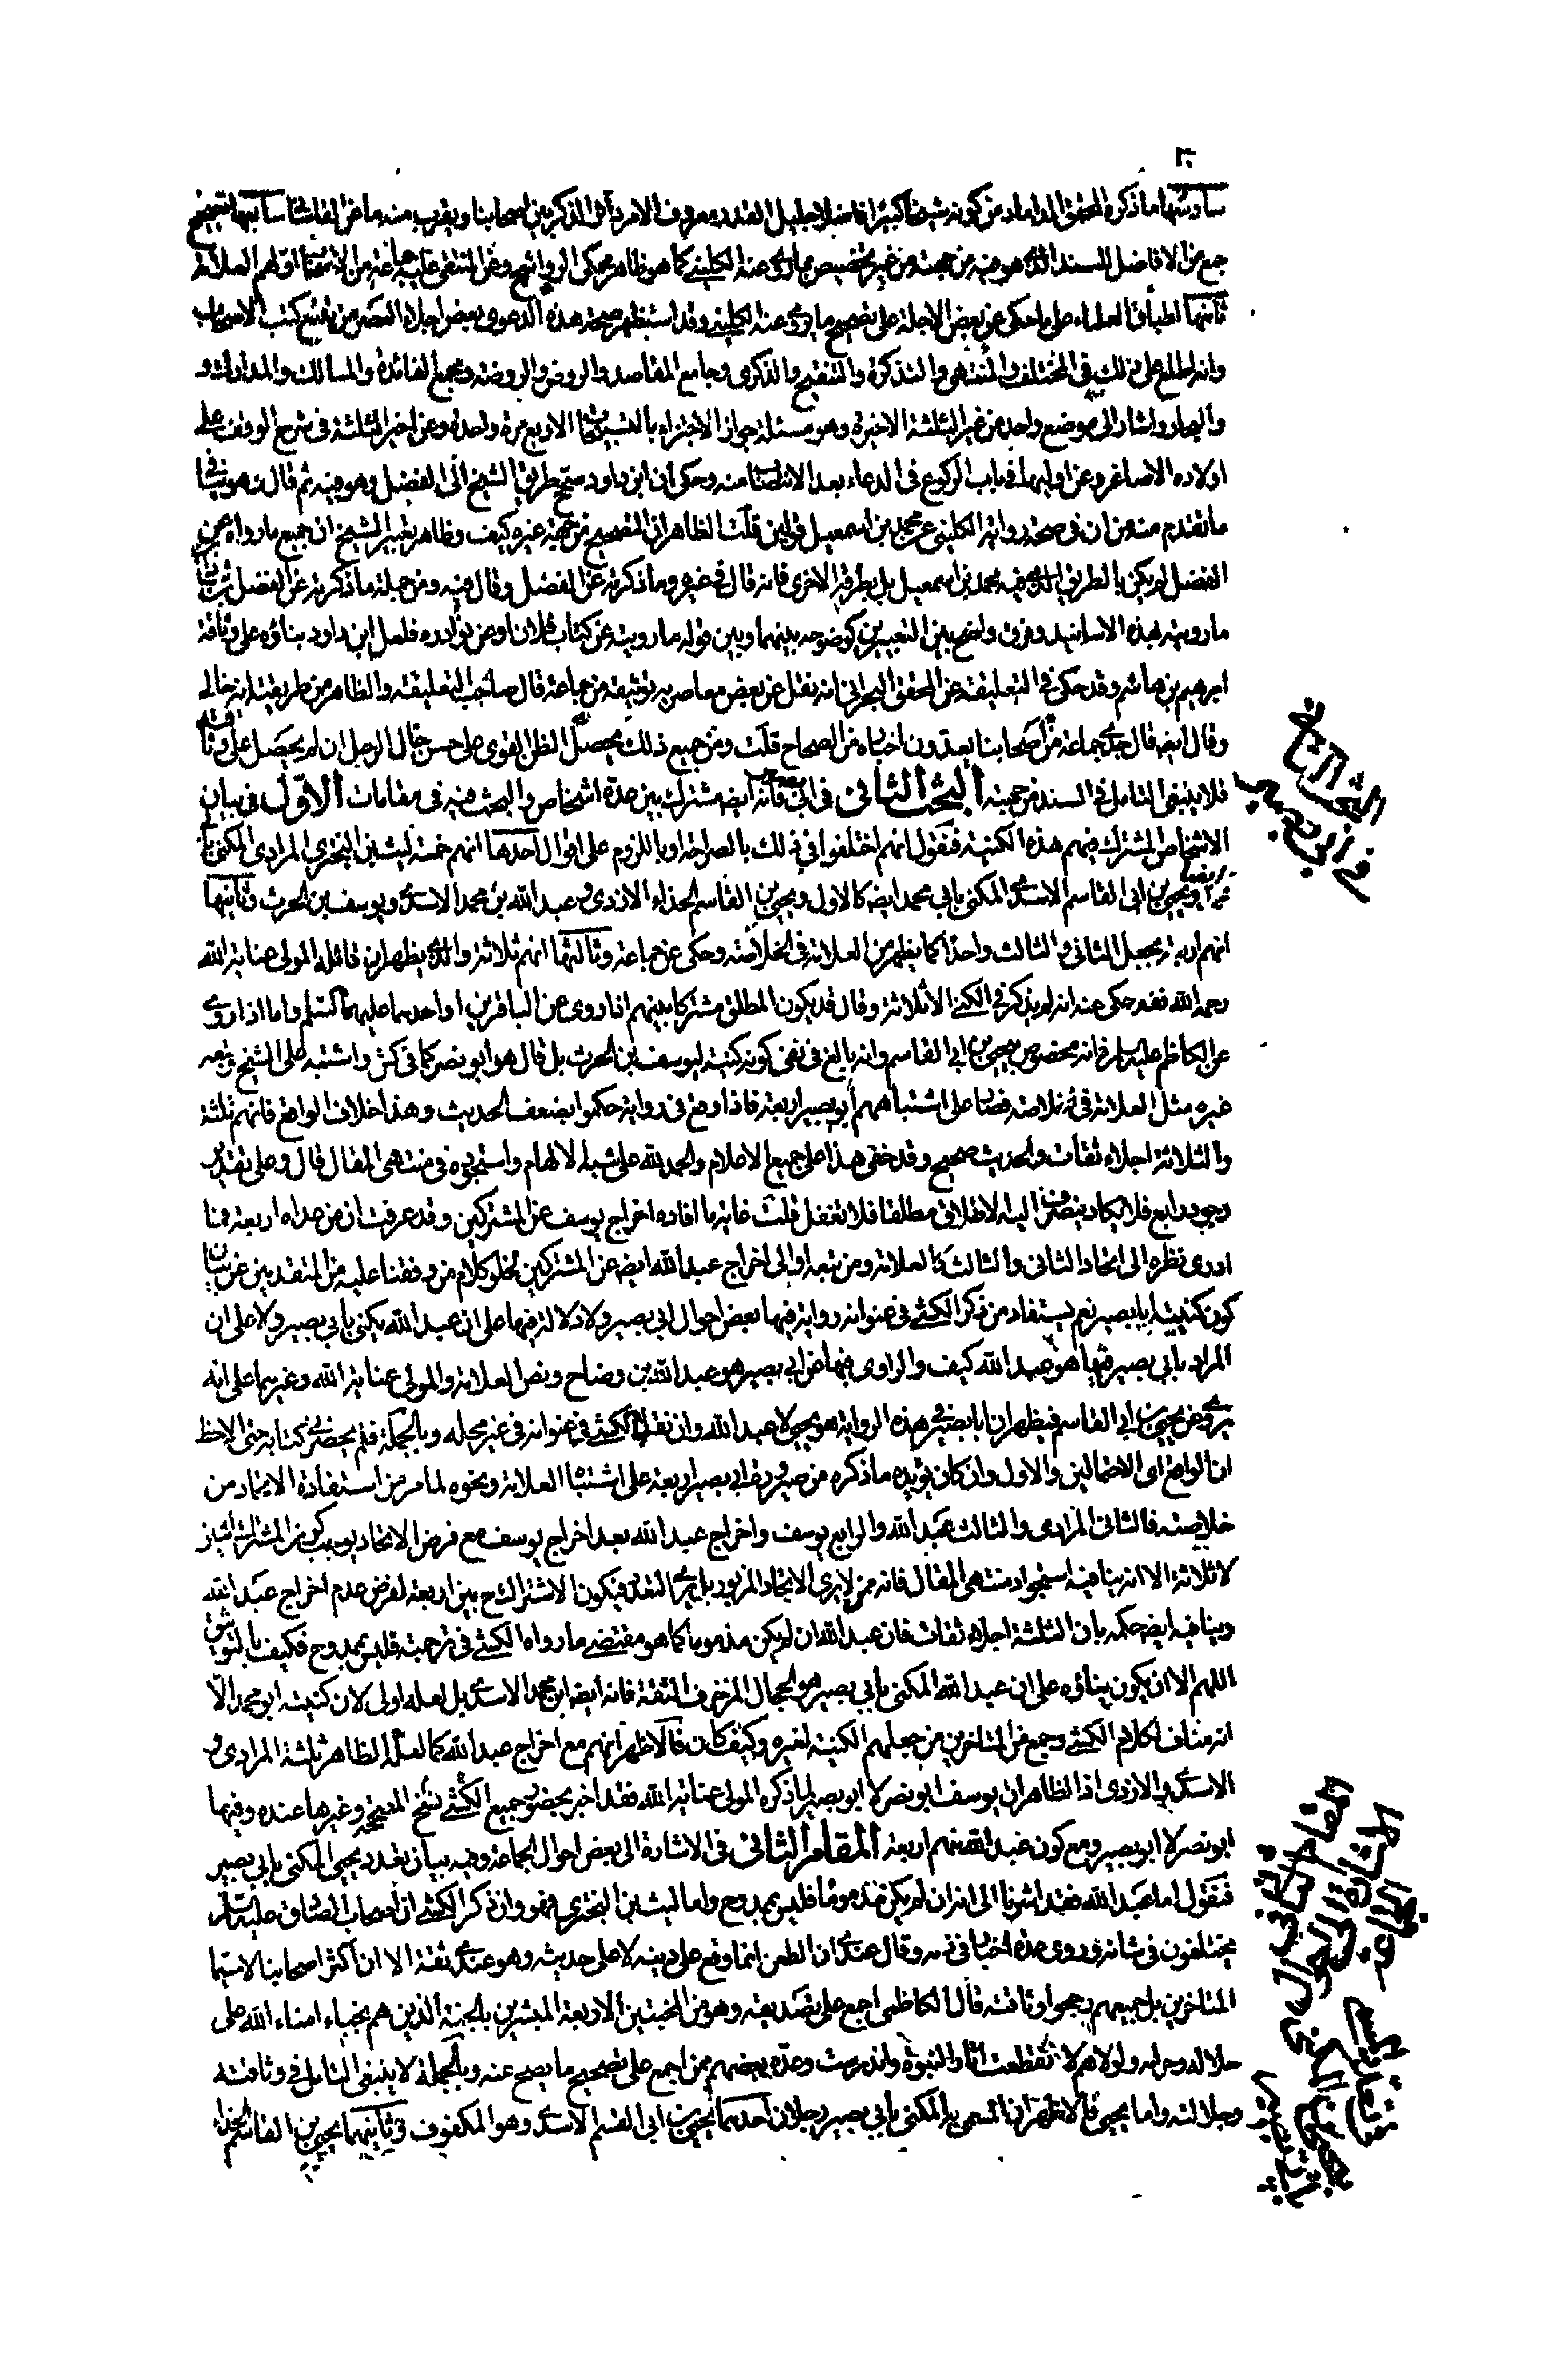 ٣٠
سادسها ما ذكره المحقق الداماد من كونه شيخا كبيرا فاضلا جليل القدر معروف الامر دائر الذكر بين اصحابنا ويقرب منه ما عن الفاضل سابعها تصحيح
جمع من الافاضل السند الذي هو فيه من جهته من غير تخصيص بما روى عنه الكليني كما هو ظاهر محكى الرواشح وعن المنتقى عليه جماعة من الاصحاب اولهم العلامة
ثامنها اطباق العلماء على ما حكى عن بعض الاجلة على تصحيح ما روى عنه الكليني وقد استظهر صحة هذه الدعوى بعض اجلاء العصر من تتبع كتب الاصحاب
وانه اطلع على ذلك في المختلف والمنتهى والتذكرة والتنقيح والذكرى وجامع المقاصد والروض والروضة ومجمع الفائدة والمسالك والمدارك و
والبحار واشار الى موضع واحد من غير الثلثة الاخيرة وهو مسئلة جواز الاجتزاء بالتسبيحات الاربع مرة واحدة وعن اخير الثلثة في شرح الوقف على
اولاده الاصاغر وعن اوليها في باب الركوع في الدعاء بعد الانتصاب منه وحكى ان ابن داود صحح طريق الشيخ الى الفضل وهو فيه ثم قال وهو ينافي
ما تقدم منه من ان في صحة رواية الكليني عن محمد بن اسمعيل قولين قلت الظاهر ان التصحيح من جهة غيره كيف وظاهر تعبير الشيخ ان جميع ما رواه عن
الفضل لم يكن بالطريق الذي فيه محمد بن اسمعيل بل بطرقه الاخرى فانه قال في غيره وما ذكرته عن الفضل وقال فيه ومن جملة ما ذكرته عن الفضل بن شاذان
ما رويته بهذه الاسانيد وفرق واضح بين التعبيرين كوضوحه بينهما وبين قوله ما رويته عن كتاب فلان او عن نوادره فلعل ابن داود بناؤه على وثاقة
ابرهيم بن هاشم وقد حكى في التعليقة عن المحقق البحراني انه نقل عن بعض معاصريه توثيقه من جماعة قال صاحب التعليقة والظاهر من طريقته انه خالي
وقال ايضا قال جدي جماعة من اصحابنا يعدون اخباره من الصحاح قلت ومن جميع ذلك يحصل الظن القوى على حسن حال الرجل ان لم يحصل على وثاقته
فلا ينبغي التامل في السند من جهته البحث الثاني في ابي بصير فانه ايضا مشترك بين عدة اشخاص والبحث فيه في مقامات الاول في بيان
الاشخاص المشترك فيهم هذه الكنية فنقول انهم اختلفوا في ذلك بالصراحة او باللزوم على اقوال احدها انهم خمسة ليث بن البختري المرادى المكنى بابي
محمد ايضا ويحيى بن ابي القاسم الاسدي المكنى بابي محمد ايضا كالاول ويحيى بن القاسم الحذاء الازدى وعبد الله بن محمد الاسدي ويوسف بن الحرث وثانيها
انهم اربعة بجعل الثاني والثالث واحدا كما يظهر من العلامة في الخلاصة وحكى عن جماعة وثالثها انهم ثلاثة والذي يظهر ان قائله المولى عناية الله
رحمه الله فقد حكى عنه انه لم يذكر في الكنى الا ثلاثة وقال قد يكون المطلق مشتركا بينهم اذا روى عن الباقرين او احدهما عليهما السلم واما اذا روى
عن الكاظم عليه السلم فانه مخصوص بيحيى بن ابي القاسم وانه بالغ في نفى كونه كنية ليوسف بن الحرث بل قال هو ابو نصر كما في كش واشتبه على الشيخ وتبعه
غيره مثل العلامة في الخلاصة فصار على اشتباههم ابو بصير اربعة فاذا وقع في رواية حكموا بضعف الحديث وهذا خلاف الواقع فانهم ثلثة
والثلاثة اجلاء ثقات والحديث صحيح وقد خفى هذا على جميع الاعلام والحمد لله على شبه الالهام واستجوده في منتهى المقال قال وعلى تقدير
وجود رابع فلا يكاد ينصرف اليه لاطلاق مطلقا فلا تغفل قلت غاية ما افاده اخراج يوسف عن المشتركين وقد عرفت ان من عداه اربعة فما
ادرى نظره الى اتحاد الثاني والثالث كالعلامة ومن تبعه او الى اخراج عبد الله ايضا عن المشتركين لخلو كلام من وقفنا عليه من المتقدمين عن بيان
كون كنيته ابا بصير نعم يستفاد من ذكر الكشي في عنوانه رواية فيها بعض احوال ابي بصير ولا دلالة فيها على ان عبد الله يكنى بابي بصير ولا على ان
المراد بابي بصير فيها هو عبد الله كيف والراوى فيها عن ابي بصير هو عبد الله بن وضاح ونص العلامة والمولى عناية الله وغيرهما على انه
يروى عن يحيى بن ابي القاسم فيظهر ان ابا بصير في هذه الرواية هو يحيى لا عبد الله وان نقل الكشي في عنوانه في غير محله وبالجملة فلم يحضرني كتابه حتى الاحظ
ان الواقع اى الاحتمالين والاول وان كان يؤيده ما ذكره من صيرورة ابي بصير اربعة على اشتباه العلامة ونحوه لما مر من استفادة الاتحاد من
خلاصته فالثاني المرادى والثالث عبد الله والرابع يوسف واخراج عبد الله بعد اخراج يوسف مع فرض الاتحاد يوجب كون المشترك اثنين
لا ثلاثة الا انه ينافيه استجواد منتهى المقال فانه ممن لا يرى الاتحاد المزبور بل يرى التعدد فيكون الاشتراك ح بين اربعة لفرض عدم اخراج عبد الله
وينافيه ايضا حكمه بان الثلثة اجلاء ثقات فان عبد الله ان لم يكن مذموما كما هو مقتضى ما رواه الكشي في ترجمته فليس بممدوح فكيف بالتوثيق
اللهم الا ان يكون بناؤه على ان عبد الله المكنى بابي بصير هو الحجال المزخرف الثقة فانه ايضا ابن محمد الاسدي بل لعله اولى لان كنيته ابو محمد الا
انه مناف لكلام الكشي وجمع من المتاخرين من جعلهم الكنية لغيره وكيف كان فالاظهر انهم مع اخراج عبد الله كما لعله الظاهر ثلثة المرادى و
الاسدي والازدى اذ الظاهر ان يوسف ابو نصر لا ابو بصير لما ذكره المولى عناية الله فقد اخبر بحضور جميع الكشي نسخ المصححة وغيرها عنده وفيها
ابو نصر لا ابو بصير ومع كون عبد الله منهم اربعة المقام الثاني في الاشارة الى بعض احوال الجماعة وفيه بيان تعدد يحيى المكنى بابي بصير
فنقول اما عبد الله فقد اشرنا الى انه ان لم يكن مذموما فليس بممدوح واما ليث بن البختري فهو وان ذكر الكشي ان اصحاب الصادق عليه السلم
يختلفون في شانه وروى عدة اخبار في ذمه وقال عندي ان الطعن انما وقع على دينه لا على حديثه وهو عندي ثقة الا ان اكثر اصحابنا لا سيما
المتاخرين بل جميعهم رجحوا وثاقته قال الكاظمي اجمع على تصديقه وهو من المخبتين الاربعة المبشرين بالجنة الذين هم نجباء امناء الله على
حلاله وحرامه ولولا هم لا نقطعت اثار النبوة واندرست وعده بعضهم ممن اجمع على تصحيح ما يصح عنه وبالجملة لا ينبغي التامل في وثاقته
وجلالته واما يحيى فالاظهر ان المسمى به المكنى بابي بصير رجلان احدهما يحيى بن ابي القسم الاسدي وهو المكفوف وثانيهما يحيى بن القاسم الحذاء
البحث الثاني
في ابي بصير